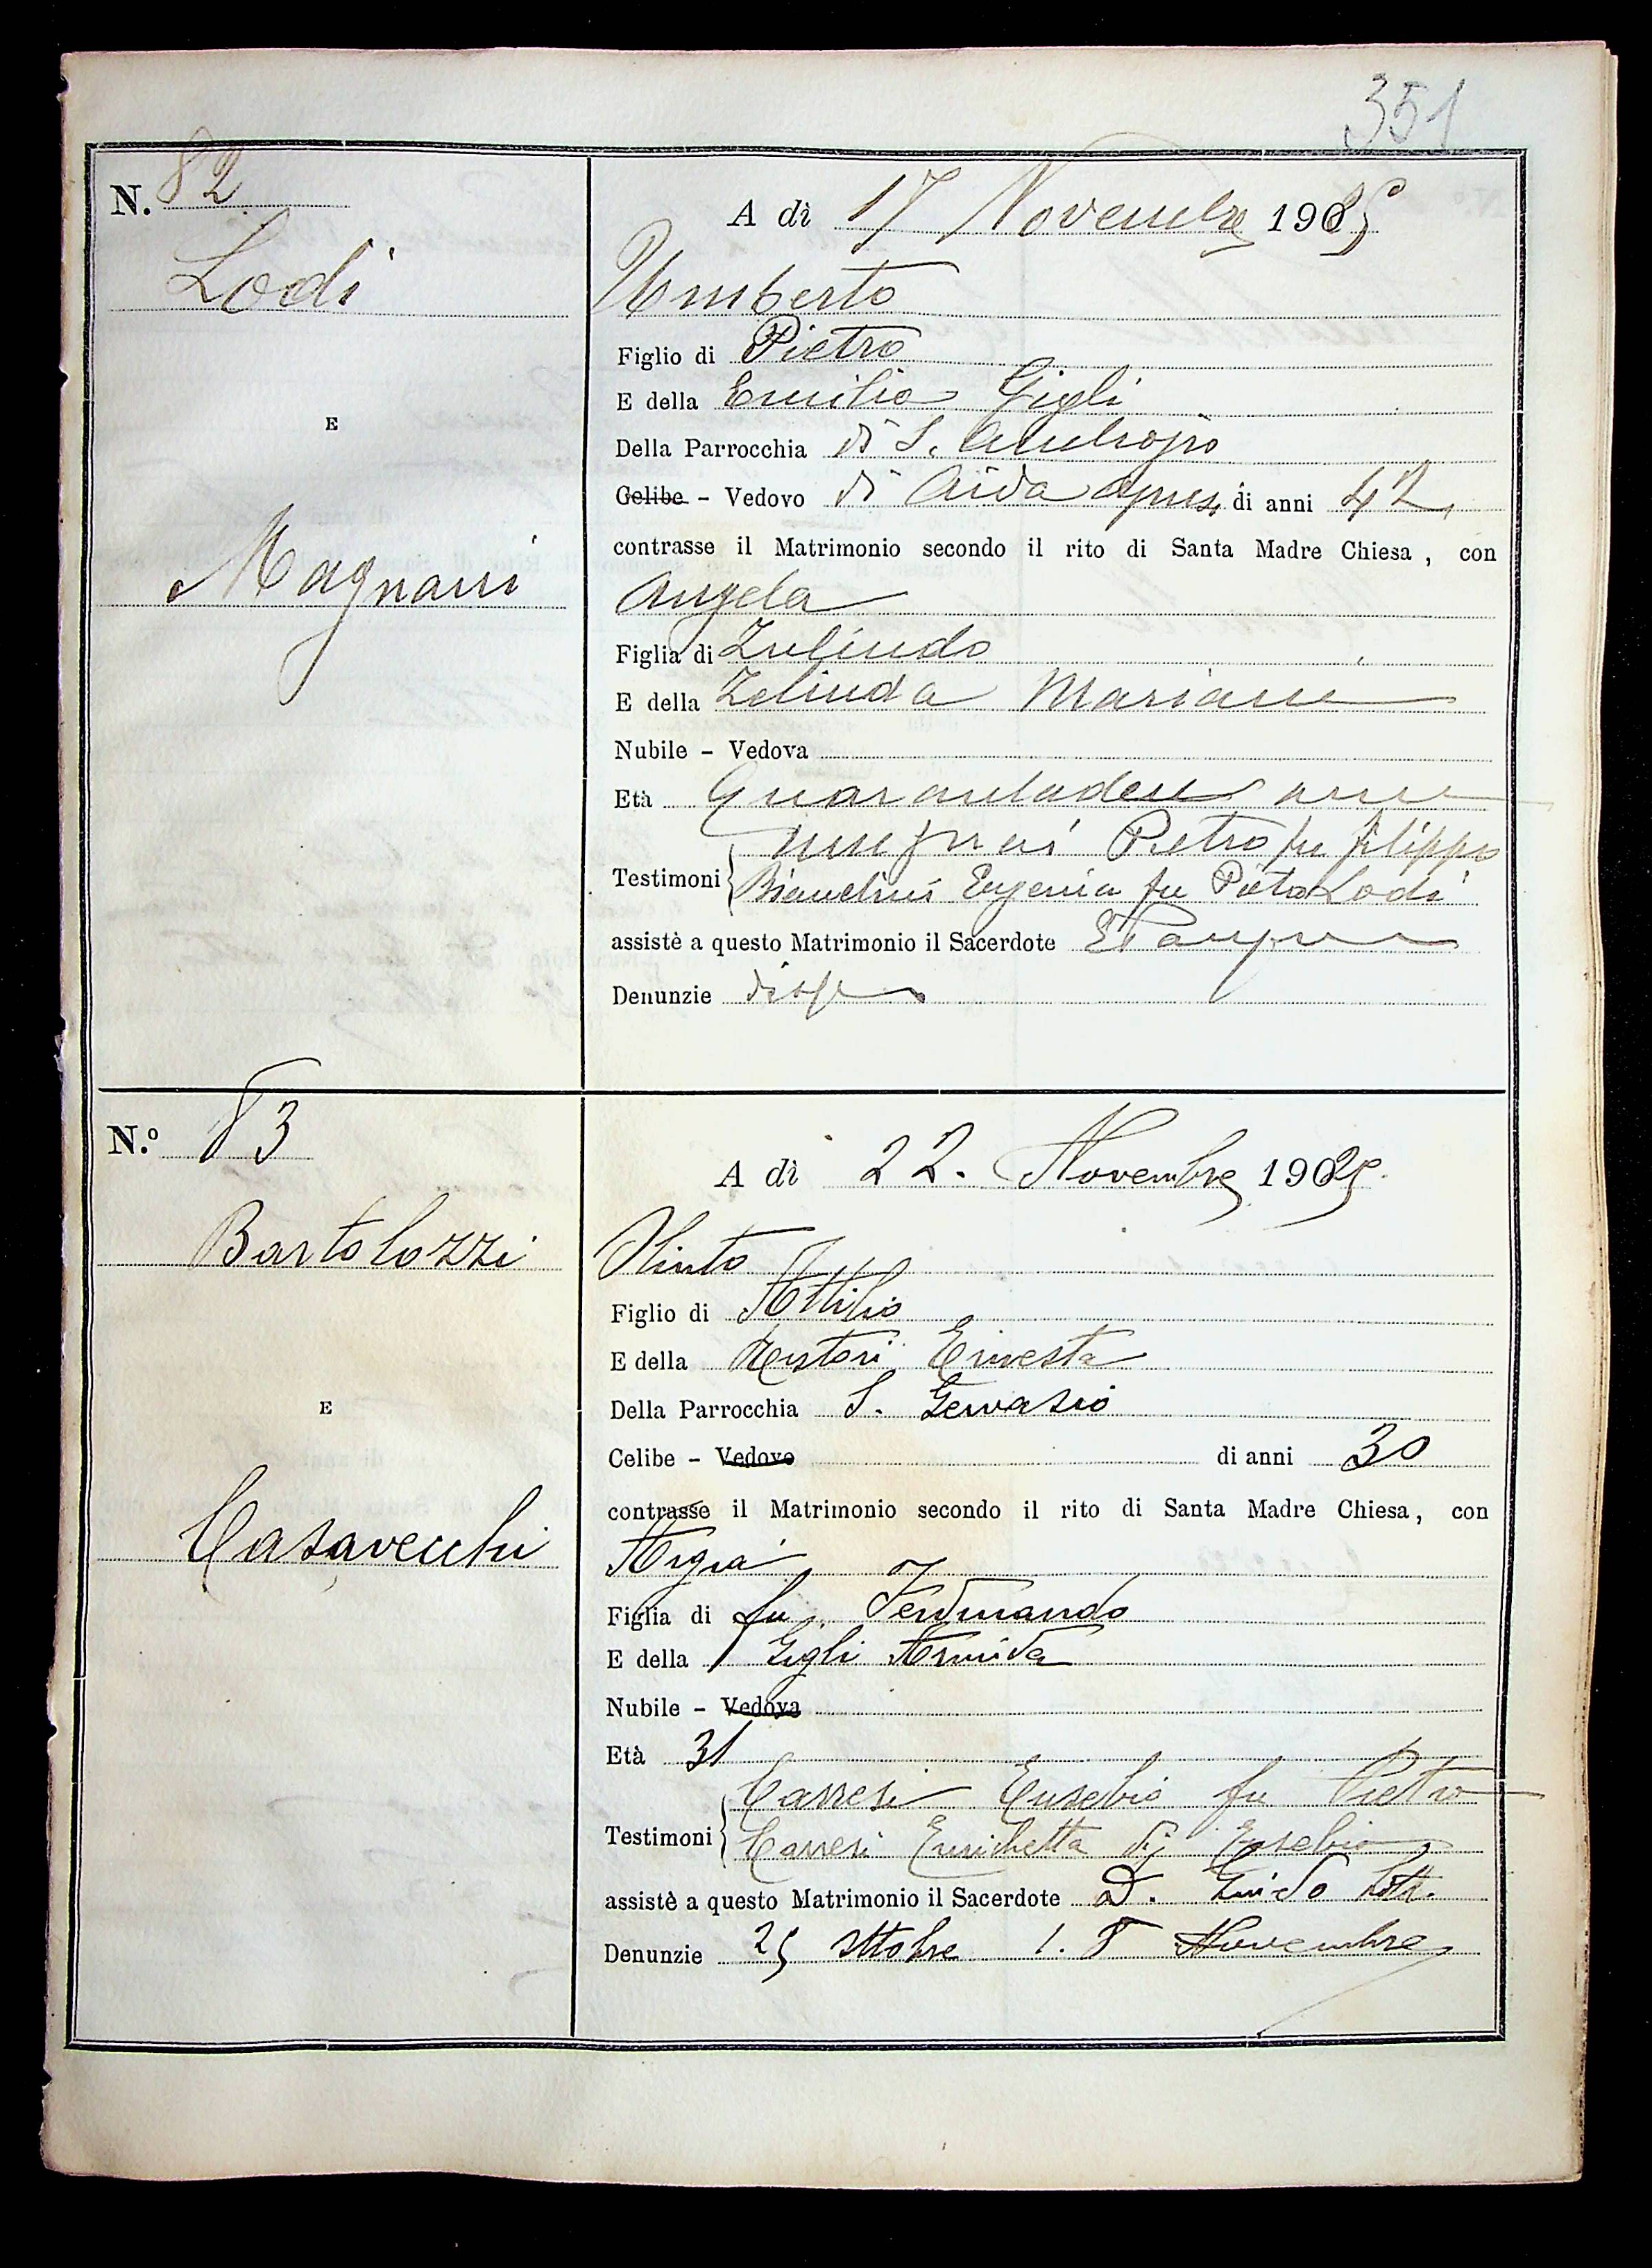 351
N. 82
Lodi
E
Magnani
A dì 17 Novembre 1925
Umberto
Figlio di Pietro
E della Emilia Gigli
Della Parrocchia di S. Ambrogio
Celibe - Vedovo di Aida di anni 42
contrasse il Matrimonio secondo il rito di Santa Madre Chiesa, con
Angela
Figlia di Zulindo
E della Zelinda Mariani
Nubile - Vedova
Età
Testimoni Pietro fu Filippo
Bianchini Eugenia fu Pietro Lodi
assistè a questo Matrimonio il Sacerdote
Denunzie
N.º 83
Bartolozzi
E
Casavecchi
A dì 22. Novembre 1925.
Olinto
Figlio di Attilio
E della Nustori Ernesta
Della Parrocchia S. Gervasio
Celibe - Vedovo di anni 30
contrasse il Matrimonio secondo il rito di Santa Madre Chiesa, con
Argia
Figlia di fu Ferdinando
E della Gigli Armida
Nubile - Vedova
Età 31
Testimoni Carresi Eusebio fu Pietro
Carresi Enrichetta di Eusebio
assistè a questo Matrimonio il Sacerdote D. Guido
Denunzie 25 Ottobre 1. 8 Novembre